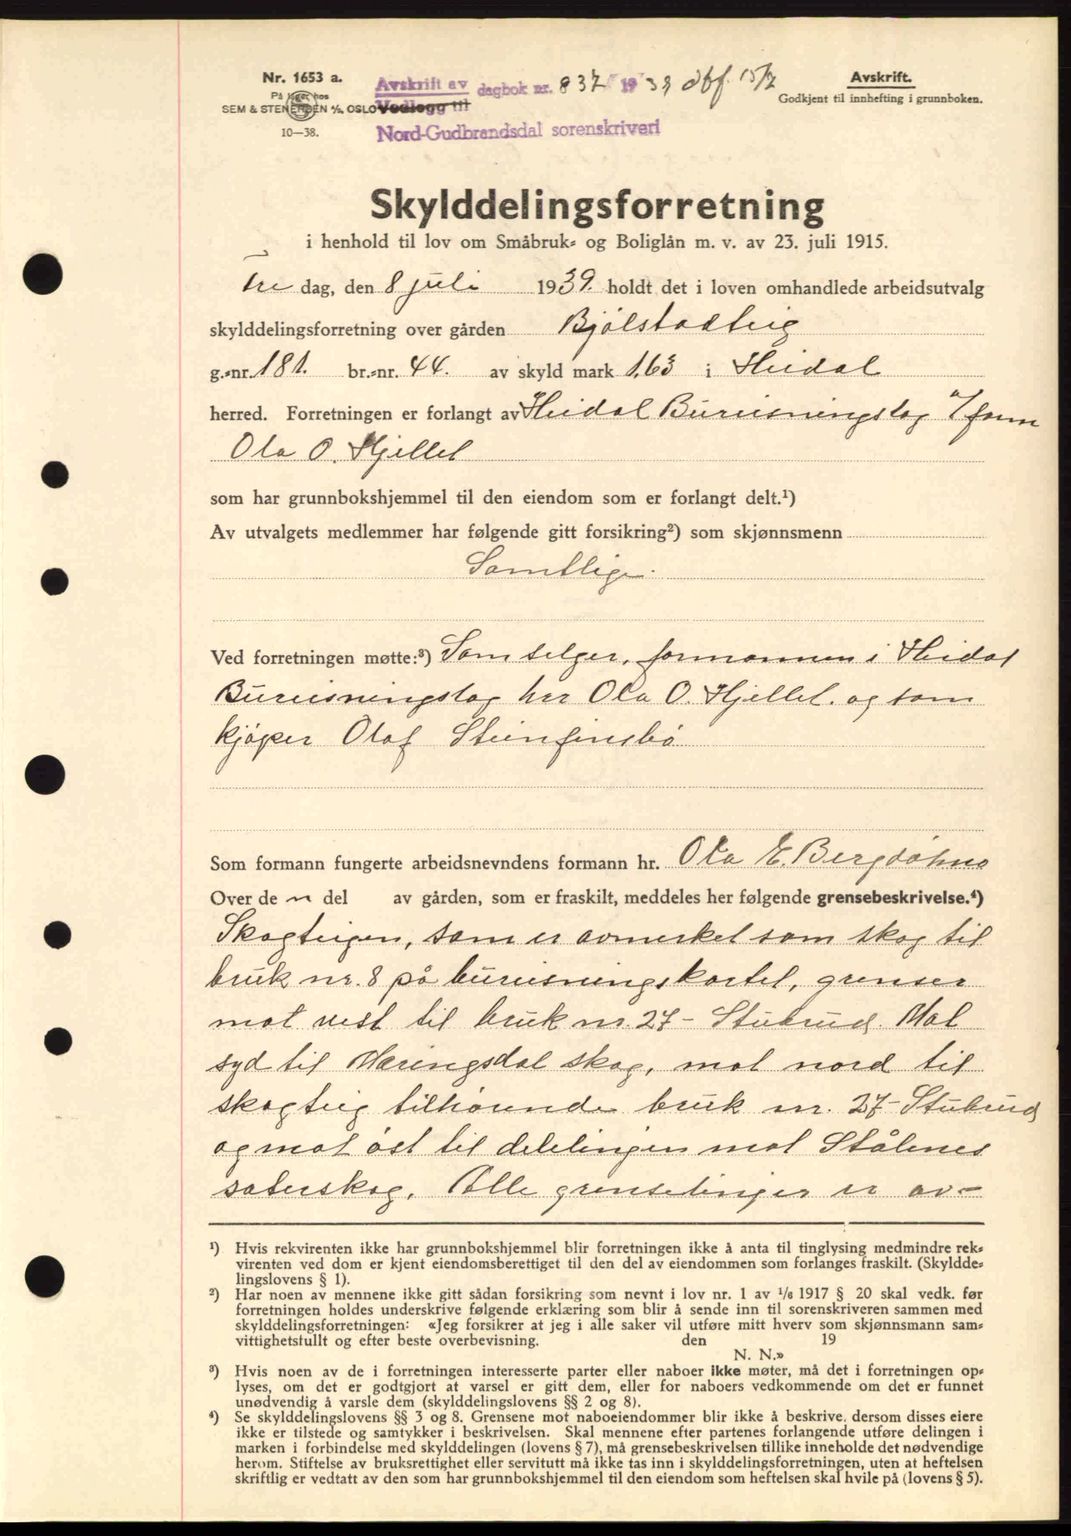 Nr. 1653 a.
På lager hos
SEM & STENERSEN A/S, OSLO
10—38.
Avskrift av
Vedlegg til
dagbok nr. 837 1939 dbf. 15/7
Nord-Gudbrandsdal sorenskriveri
Avskrift.
Godkjent til innhefting i grunnboken.
Skylddelingsforretning
i henhold til lov om Småbruk- og Boliglån m. v. av 23. juli 1915.
Fre dag, den 8 juli 1939. holdt det i loven omhandlede arbeidsutvalg
skylddelingsforretning over gården Bjølstadteig
g.-nr. 181. br.-nr. 44. av skyld mark 1,63 i Heidal
herred. Forretningen er forlangt av Heidal Bureisningslag v/form
Ola O. Hjellet
som har grunnbokshjemmel til den eiendom som er forlangt delt.¹)
Av utvalgets medlemmer har følgende gitt forsikring²) som skjønnsmenn
Samtlige.
Ved forretningen møtte:³) Som selger, formannen i Heidal
Bureisningslag hr Ola O. Hjellet. og som
kjøper Olaf Steinfinsbø
Som formann fungerte arbeidsnevndens formann hr. Ola E. Bergdøhno
Over de n del av gården, som er fraskilt, meddeles her følgende grensebeskrivelse.⁴)
Skogteigen, som er avmerket som skog til
bruk nr. 8 på bureisningskartet, grenser
mot vest til bruk nr. 27 - Stubrud. Mot
syd til Haringsdal skog, mot nord til
skogteig tilhørende bruk nr. 27 - Stubrud
og mot øst til delelingen mot Stålenes
säterskog. Alle grenselinjer er av-
¹) Hvis rekvirenten ikke har grunnbokshjemmel blir forretningen ikke å anta til tinglysing medmindre rek-
virenten ved dom er kjent eiendomsberettiget til den del av eiendommen som forlanges fraskilt. (Skyldde-
lingslovens § 1).
²) Har noen av mennene ikke gitt sådan forsikring som nevnt i lov nr. 1 av 1/6 1917 § 20 skal vedk. før
forretningen holdes underskrive følgende erklæring som blir å sende inn til sorenskriveren sammen med
skylddelingsforretningen: «Jeg forsikrer at jeg i alle saker vil utføre mitt hverv som skjønnsmann sam-
vittighetsfullt og efter beste overbevisning. den 19
N. N.»
³) Hvis noen av de i forretningen interesserte parter eller naboer ikke møter, må det i forretningen op-
lyses, om det er godtgjort at varsel er gitt dem, eller for naboers vedkommende om det er funnet
unødvendig å varsle dem (skylddelingslovens §§ 2 og 8).
⁴) Se skylddelingslovens §§ 3 og 8. Grensene mot naboeiendommer blir ikke å beskrive, dersom disses eiere
ikke er tilstede og samtykker i beskrivelsen. Skal mennene efter partenes forlangende utføre delingen i
marken i forbindelse med skylddelingen (lovens § 7), må grensebeskrivelsen tillike inneholde det nødvendige
herom. Stiftelse av bruksrettighet eller servitutt må ikke tas inn i skylddelingsforretningen, uten at heftelsen
skriftlig er vedtatt av den som har grunnbokshjemmel til den eiendom som heftelsen skal hvile på (lovens § 5).